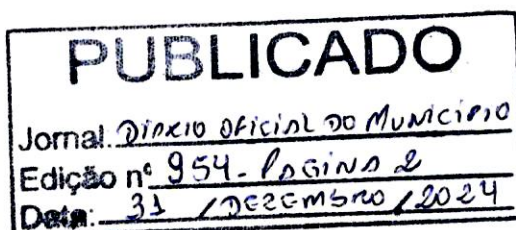 PUBLICADO
Jornal: DIÁRIO OFICIAL DO MUNICÍPIO
Edição nº 954 - PAGINA 2
Data: 31 / DEZEMBRO / 2024